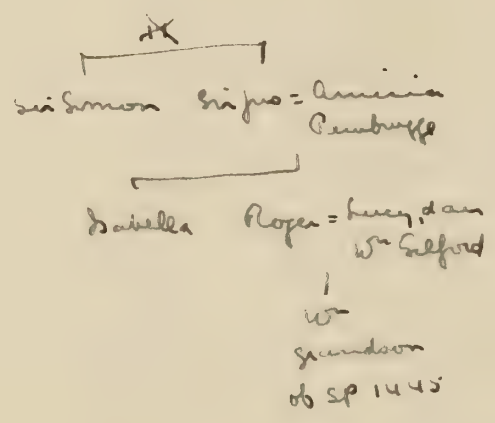 Sir Simon Sir Jno = Amisia
Pembrugge
Isabella Roger = Lucy, dau
Wm Gilford
Wm
grandson
of SP 1445